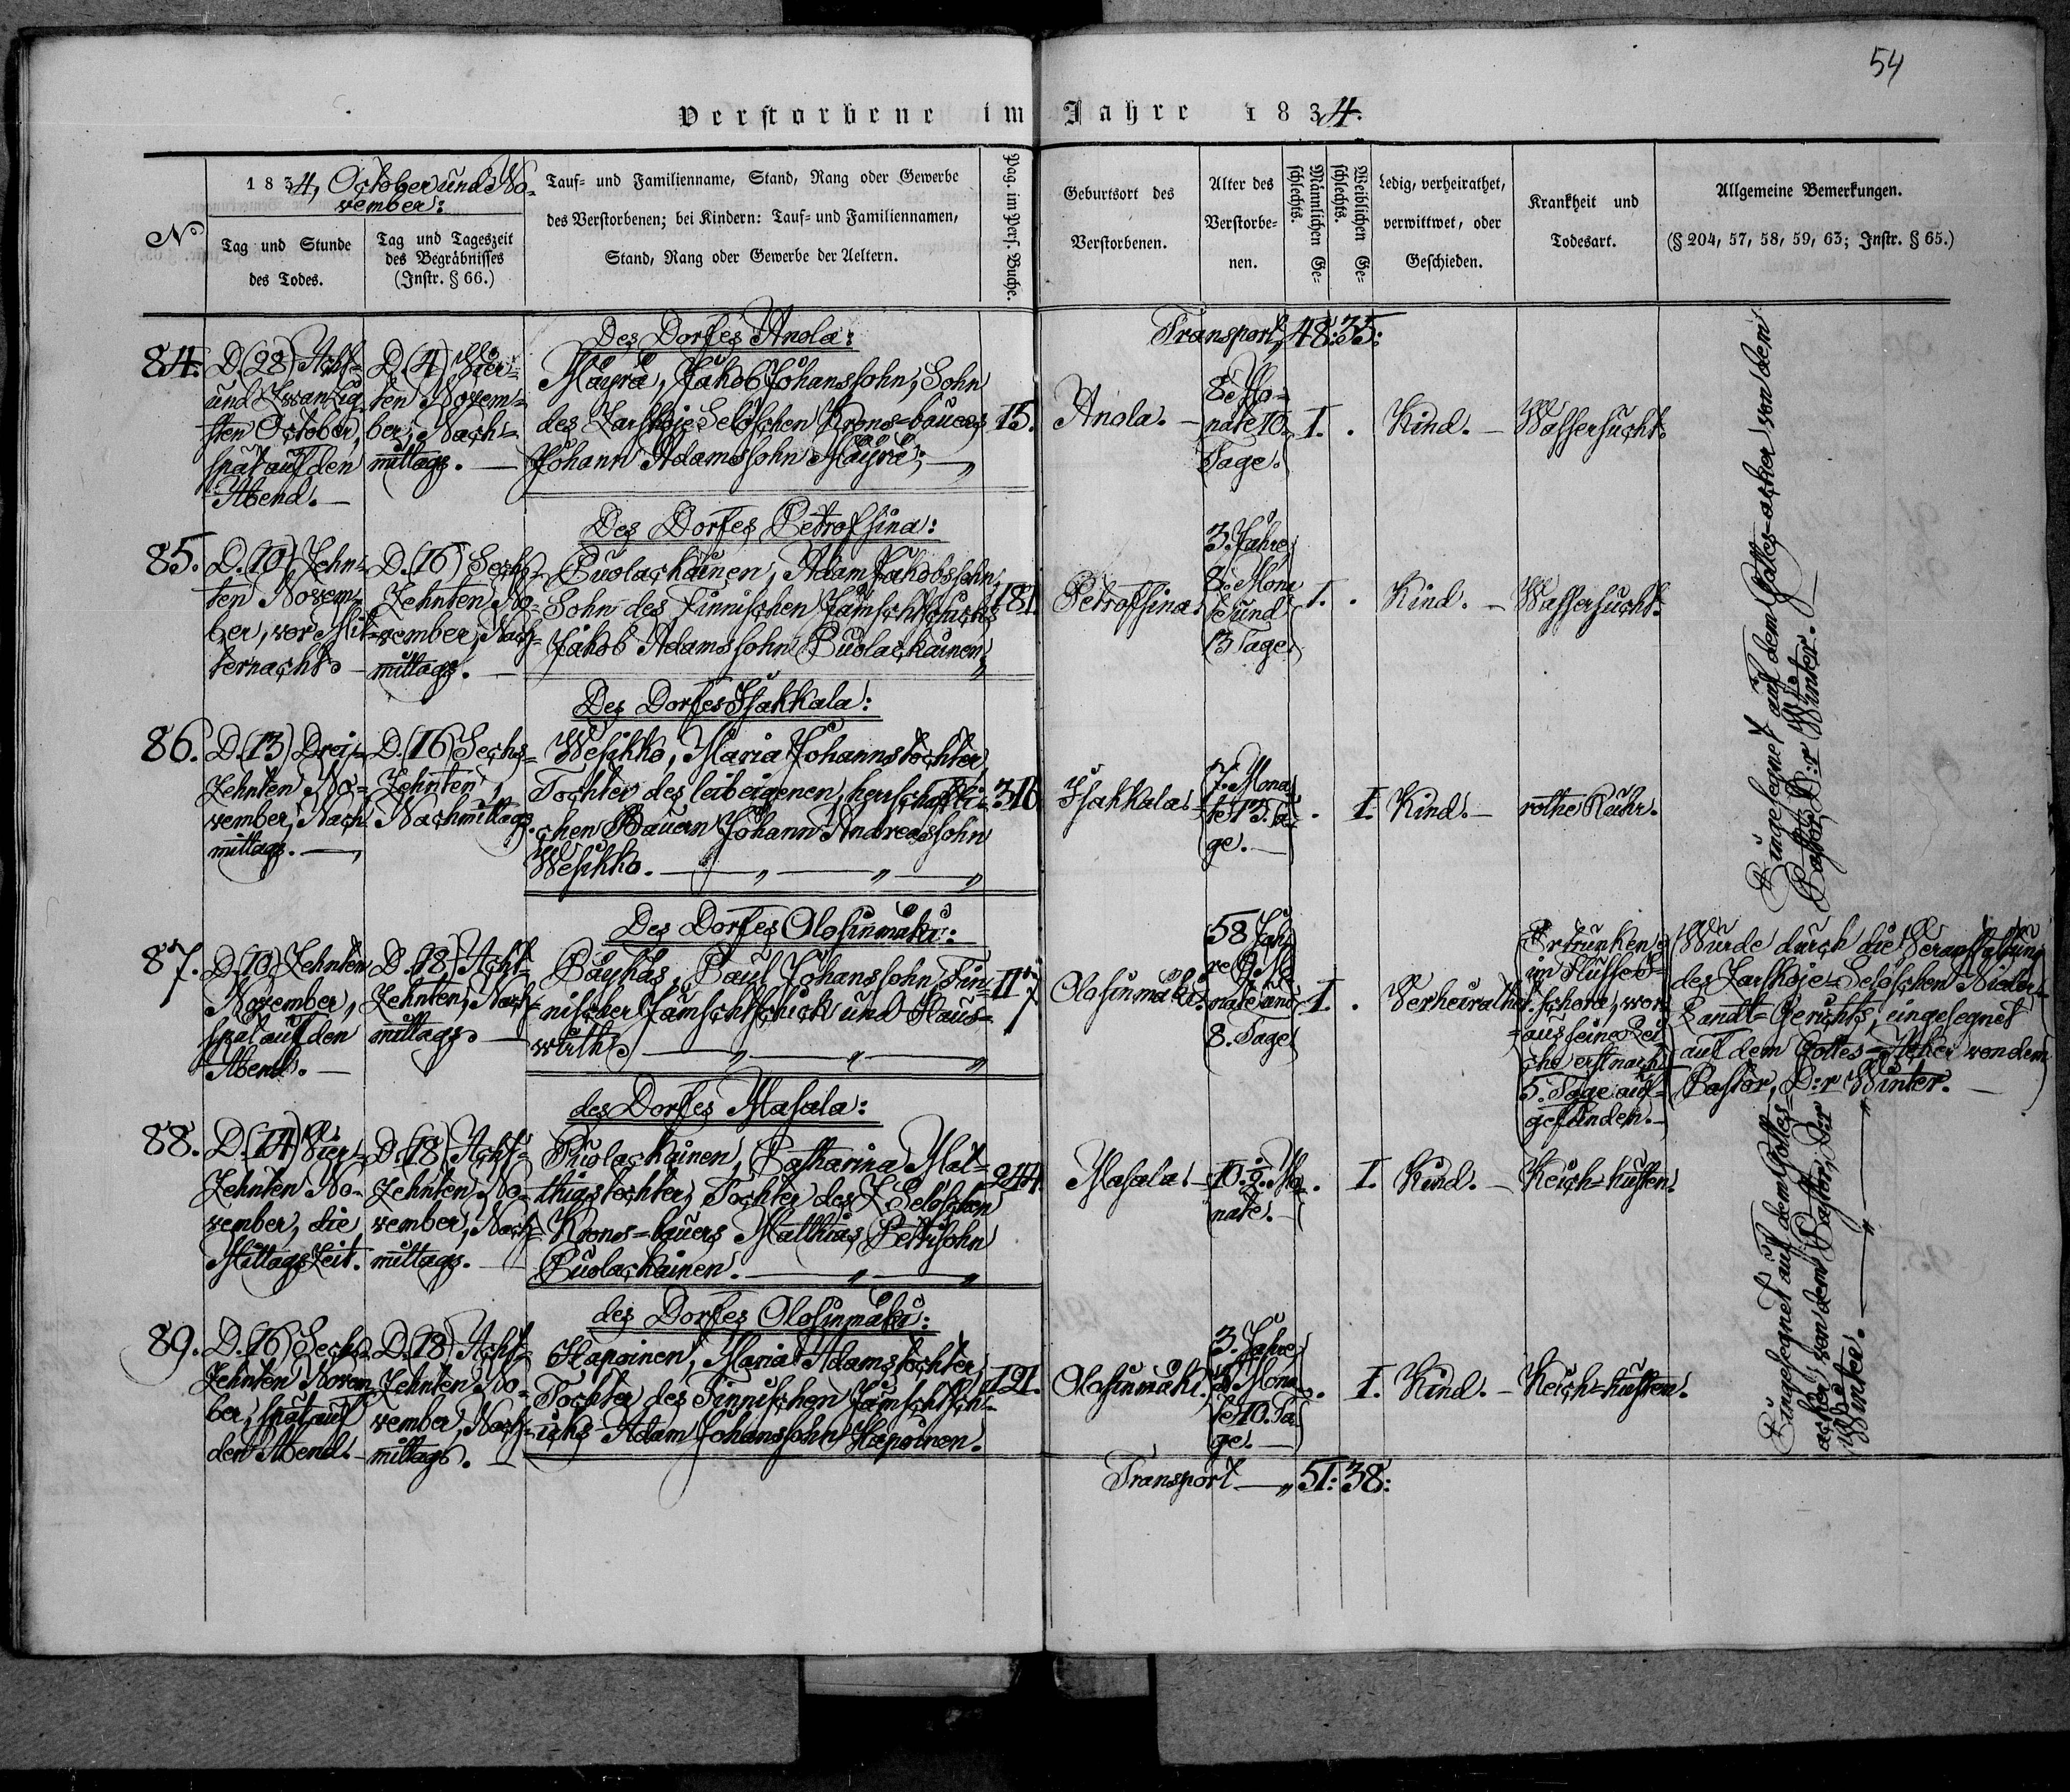 54
Verstorbene im Jahre 1834.
N°
1834, October und No-
vember:
Tag und Stunde
des Todes.
Tag und Tageszeit
des Begräbnisses
(Instr. § 66.)
Tauf- und Familienname, Stand, Rang oder Gewerbe
des Verstorbenen; bei Kindern: Tauf- und Familiennamen,
Stand, Rang oder Gewerbe der Aeltern.
Pag. im Pers. Buche.
Geburtsort des
Verstorbenen.
Alter des
Verstorbe-
nen.
Männlichen Ge-
schlechts.
Weiblichen Ge-
schlechts.
Ledig, verheirathet,
verwittwet, oder
Geschieden.
Krankheit und
Todesart.
Allgemeine Bemerkungen.
(§ 204, 57, 58, 59, 63; Instr. § 65.)
Transport, 48: 35:
84.
D. (28) Acht-
und Zwanzig-
sten October,
spät auf den
Abend. —
D. (4) Vier-
ten Novem-
ber, Nach-
mittags. —
Des Dorfes Anola:
Mäyrä, Jakob Johanssohn, Sohn
des Zarskoje Seloschen Krons-bauers
Johann Adamssohn Mäyrä; —
15.
Anola. —
8. Mo-
nate 10.
Tage.
I. .
Kind. —
Wassersucht.
85.
D. (10) Zehn-
ten Novem-
ber, vor Mit-
ternacht. —
D. (16) Sechs-
Zehnten No-
vember, Nach-
mittags. —
Des Dorfes Petrofsina:
Puolackainen, Adam Jakobssohn,
Sohn des Finnischen Jämschtschicks
Jakob Adamssohn Puolackainen,
181.
Petrofsina.
3. Jahre,
8. Mona
te und
13 Tage.
I. .
Kind. —
Wassersucht.
86.
D. (13) Drei-
Zehnten No-
vember, Nach
mittags. —
D. (16) Sechs-
Zehnten,
Nachmittags.
Des Dorfes Isakkala:
Wesikko, Maria Johannstochter,
Tochter des leibeigenen, herrschaftli-
chen Bauern Johann Andreassohn
Wesikko. —
316
Isakkala.
7. Mona
te 13. Ta-
ge. —
. I.
Kind. —
rothe Ruhr.
Eingesegnet auf dem Gottes-acker von dem
Pastor, D:r Winter. —
87.
D. (10) Zehnten
November,
spät auf den
Abend. —
D. (18) Acht-
Zehnten, Nach-
mittags. —
Des Dorfes Olosinmäki:
Päykäs, Paul Johanssohn, Fin-
nischer Jämschtschick und Haus-
wirth. —
117
Olosinmäki.
58 Jah-
re 9. Mo
nate und
8. Tage.
I. .
Verheirathet.
Ertrunken
im Flusse
schora, wor-
aus seine Lei
che erst nach
5. Tage auf-
gefunden. —
Wurde durch die Veranstaltung
des Zarskoje-Seloschen Nieder-
Landt-Gerichts, eingesegnet
auf dem Gottes-Acker von dem
Pastor, D:r Winter. —
88.
D. (14) Vier-
Zehnten No-
vember, die
Mittagszeit.
D. (18) Acht-
Zehnten No-
vember, Nach-
mittags. —
des Dorfes Masala:
Puolackainen, Catharina Mat-
thiastochter, Tochter des Z. Seloschen
Krons-bauers Matthias Pettersohn
Puolackainen. —
244.
Masala. —
Mo
nate. —
. I.
Kind. —
Keich-husten.
89.
D. (16) Sechs-
Zehnten Novem
ber, spät auf
den Abend. —
D. (18) Acht-
Zehnten No-
vember, Nach-
mittags. —
des Dorfes Olosinmäki:
Haponen, Maria Adamstochter,
Tochter des Finnischen Jämschtsch-
icks Adam Johanssohn Haponen.
121.
Olosinmäki.
3. Jahre,
Mona
te 10. Ta
ge. —
. I.
Kind. —
Keich-husten.
Eingesegnet auf dem Gottes-
acker, von dem Pastor, D:r
Winter. —
Transport — 51: 38: